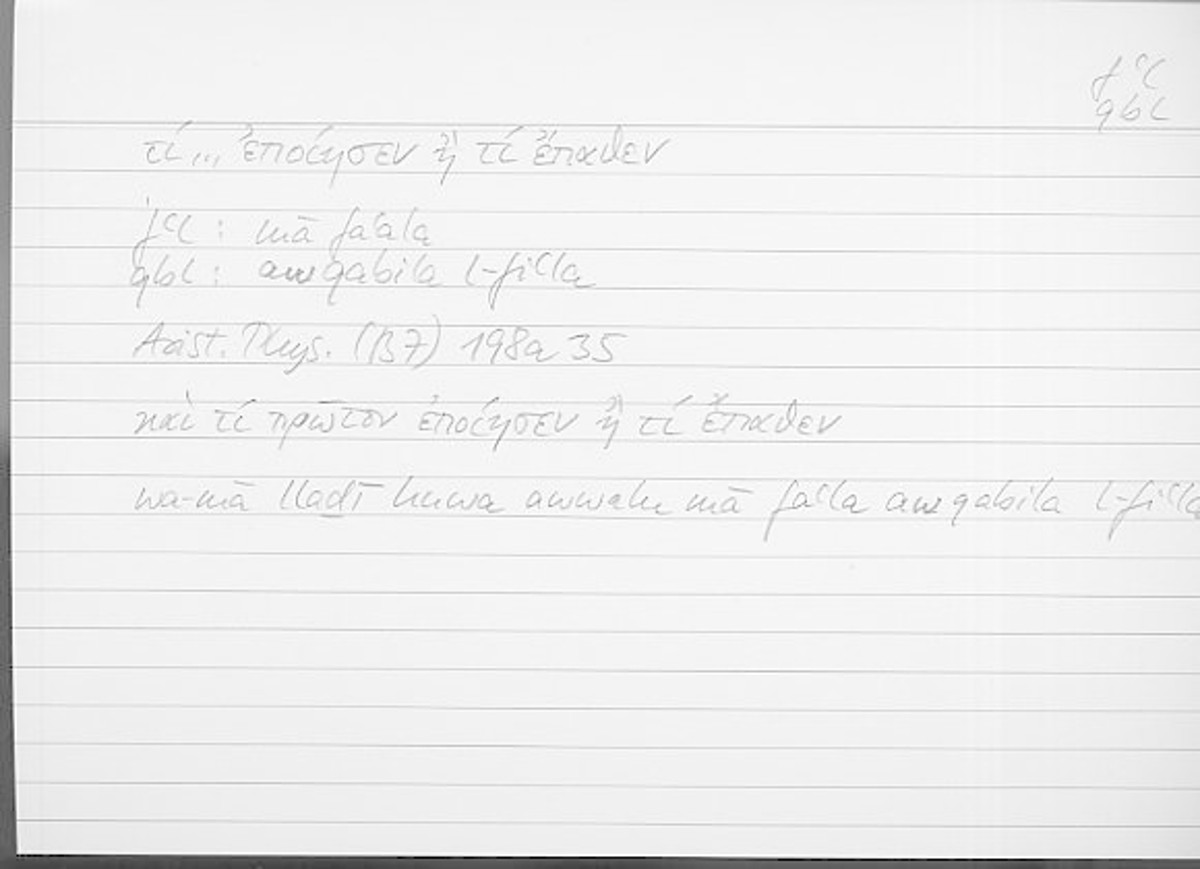 fʿl
qbl
τί... ἐποίησεν ἢ τί ἔπαθεν
fʿl : mā faʿala
qbl : aw qabila l-fiʿla
Arist. Phys. (B7) 198a 35
καὶ τί πρῶτον ἐποίησεν ἢ τί ἔπαθεν
wa-mā lladī huwa awwalu mā faʿla aw qabila l-fiʿla